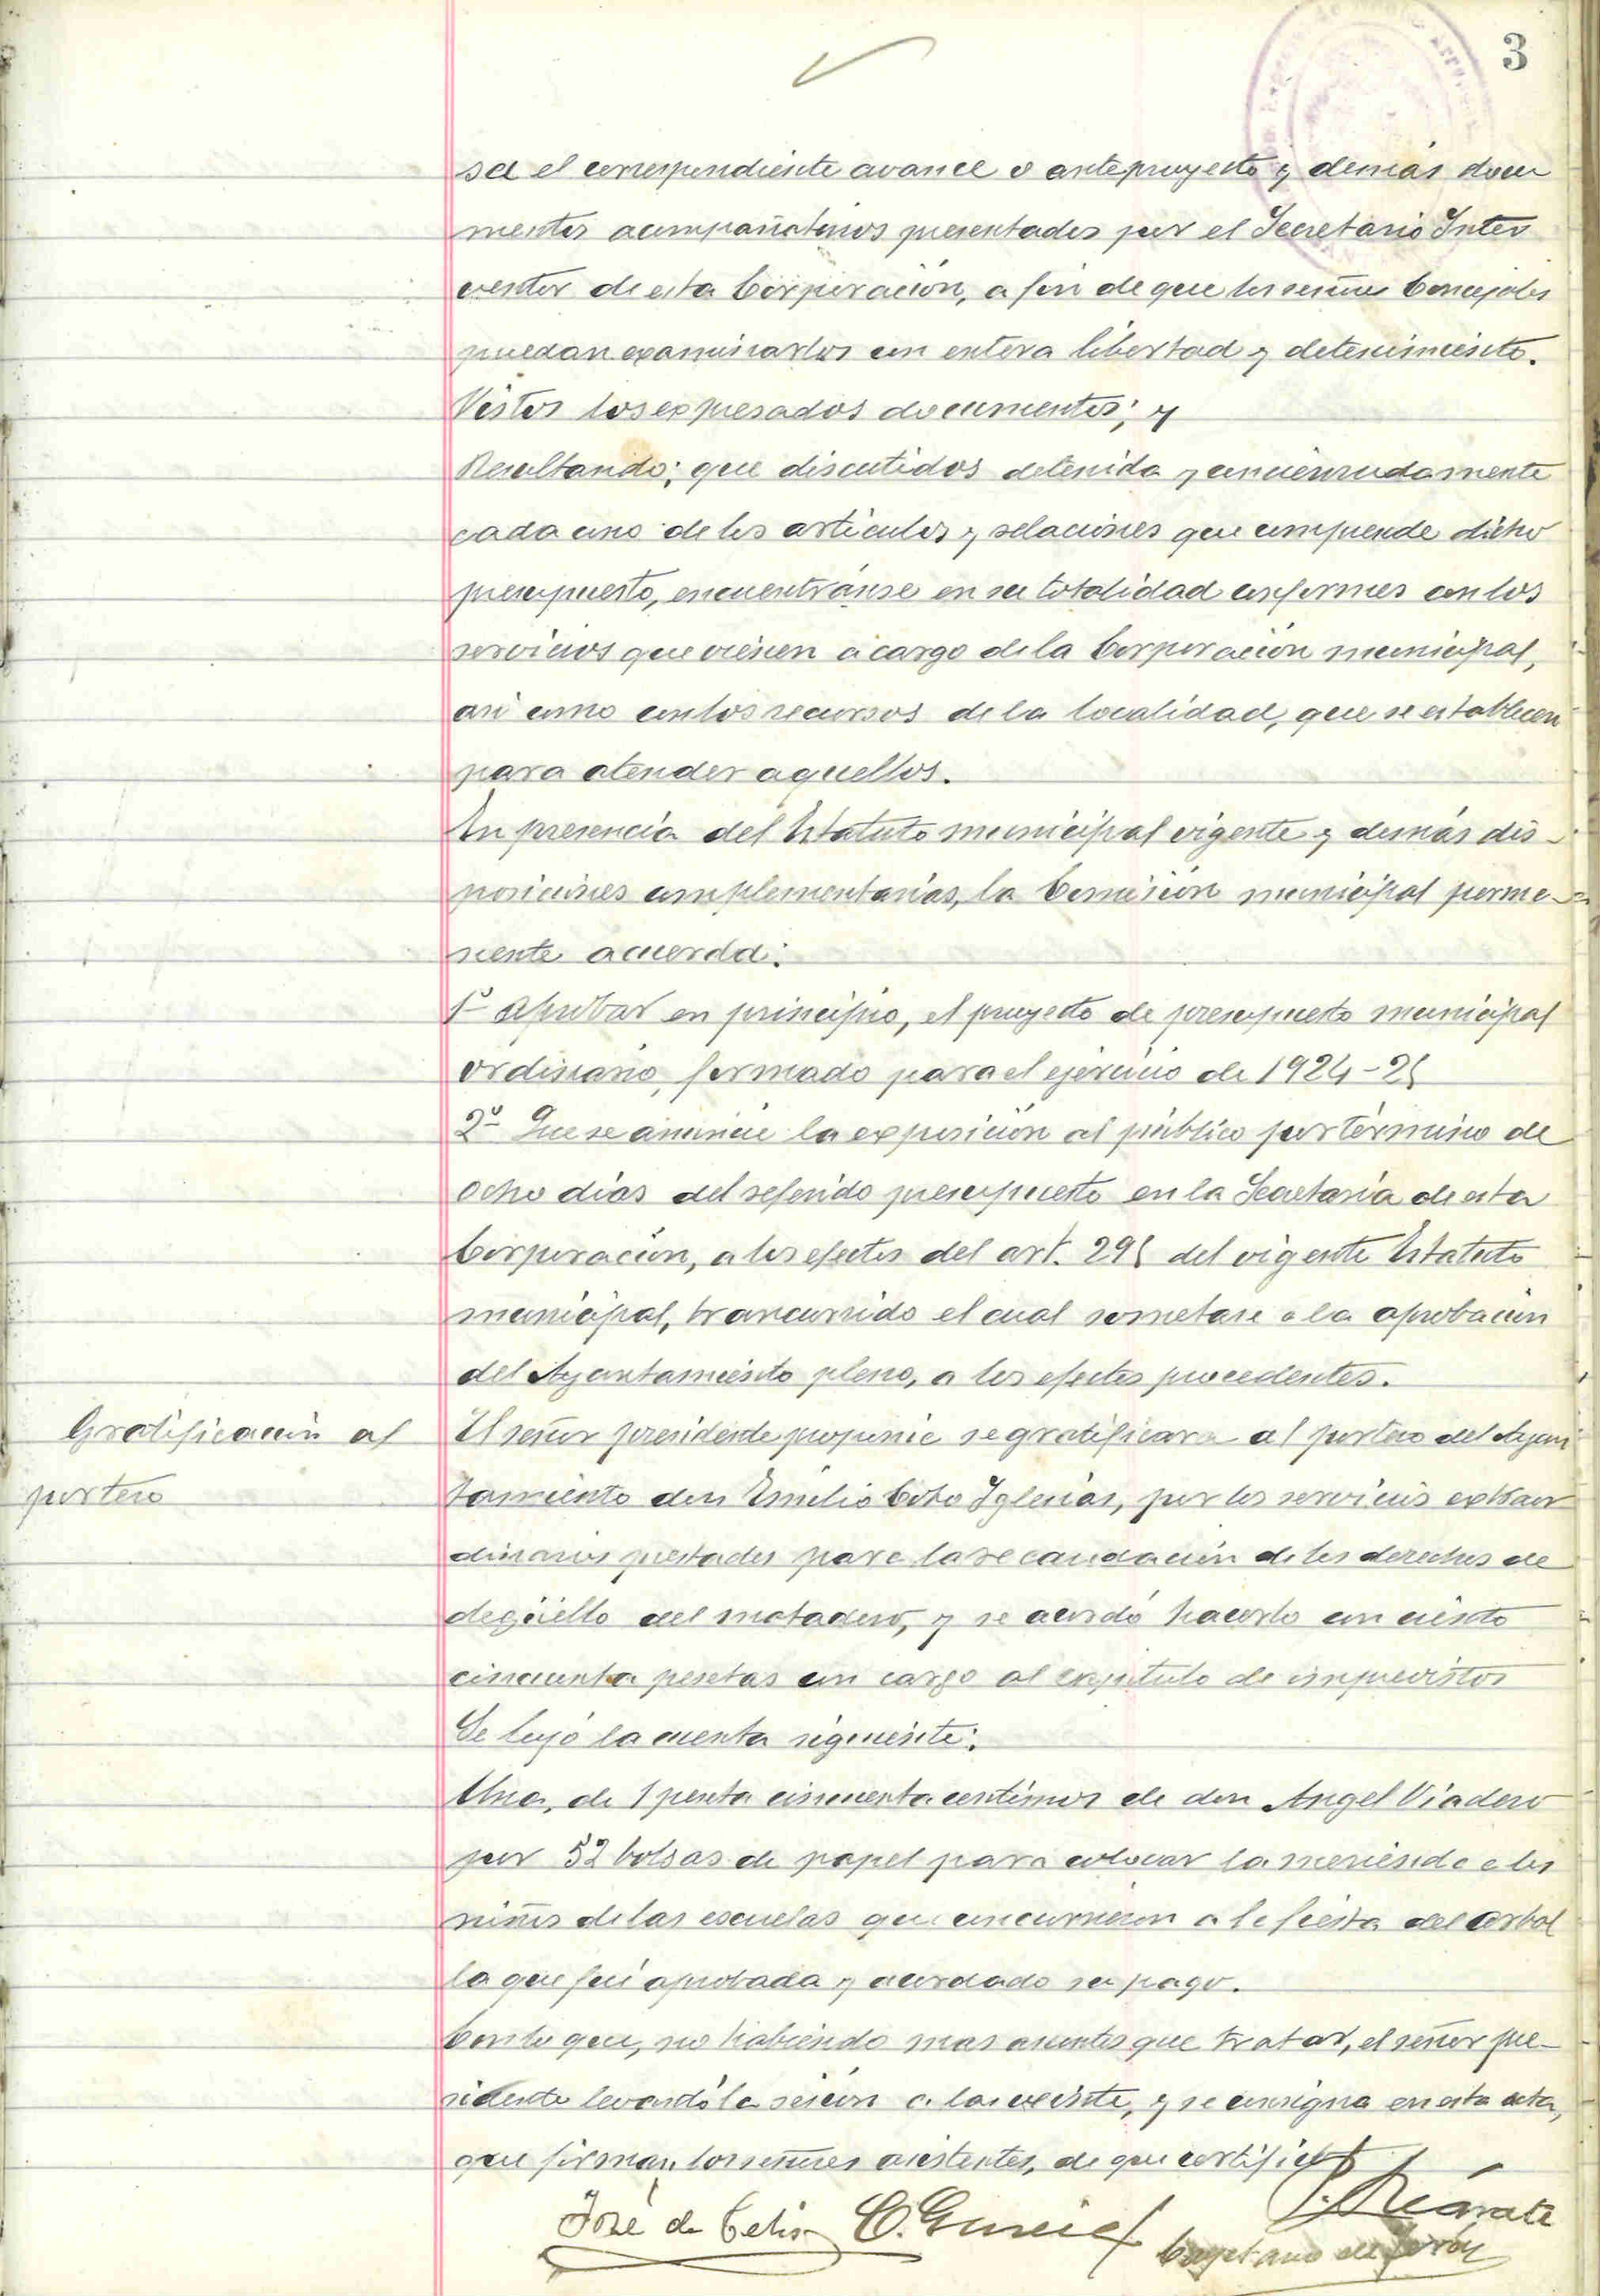 3
sa el correspondiente avance o anteproyecto y demás docu
mentos acompañatorios presentados por el Secretario Inter
ventor de esta Corporación, a fin de que los señores Concejales
puedan examinarlos con entera libertad y detenimiento.
Vistos los expresados documentos; y
Resultando: que discutidos detenida y concienzudamente
cada uno de los artículos y relaciones que comprende dicho
presupuesto, encuentránse en su totalidad conformes con los
servicios que vienen a cargo de la Corporación municipal,
asi como con los recursos de la localidad, que se establecen
para atender aquellos.
En presencia del Estatuto municipal vigente y demás dis-
posiciones complementarias, la Comisión municipal perma-
nente acuerda:
1º Aprobar en principio, el proyecto de presupuesto municipal
ordinario, formado para el ejercicio de 1924-25
2º Que se anuncie la exposición al público por término de
ocho días del referido presupuesto en la Secretaria de esta
Corporación, a los efectos del art. 295 del vigente Estatuto
municipal, trancurrido el cual sometase a la aprobación
del Ayuntamiento pleno, a los efectos procedentes.
Gratificación al
portero
El señor presidente propone se gratificara al portero del Ayun
tamiento don Emilio Coto Iglesias, por los servicios extraor
dinarios prestados para la recaudación de los derechos de
degüello del matadero, y se acordó hacerlo con ciento
cincuenta pesetas con cargo al capitulo de imprevistos
Se leyó la cuenta siguiente:
Una, de 1 peseta cincuenta centimos de don Angel Viadero
por 52 bolsas de papel para colocar la merienda a los
niños de las escuelas que concurrieron a la fiesta del arbol
la que fué aprobada y acordado su pago.
Con lo que, no habiendo mas asuntos que tratar, el señor pre-
sidente levantó la sesión a las veinte, y se consigna en esta acta,
que firman los señores asistentes, de que certifico
José de Celis C. Garcia
Cayetano de